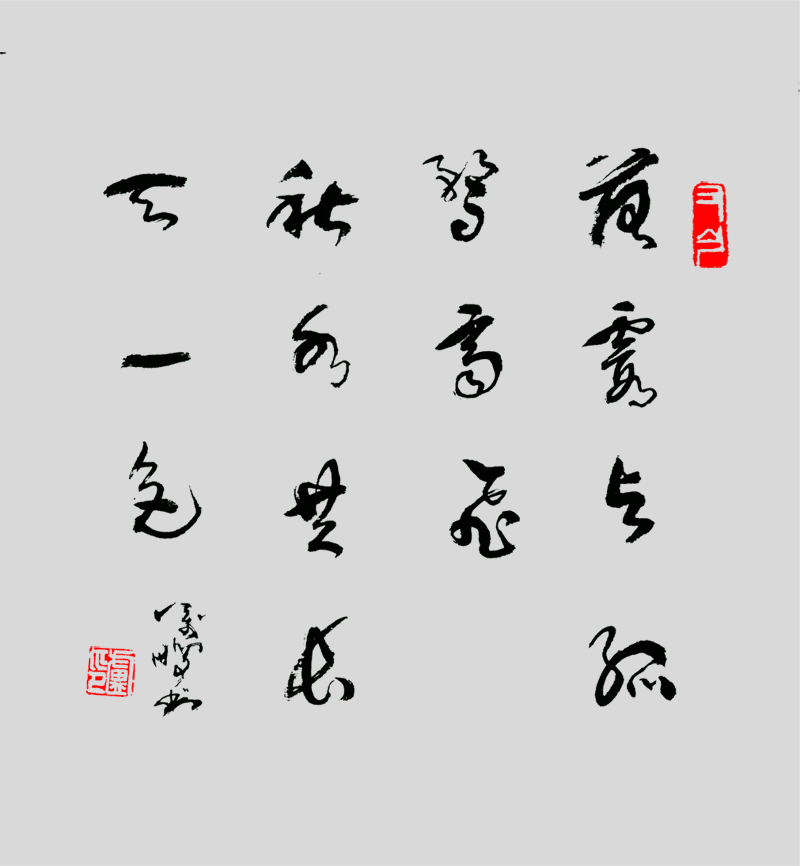 落霞与孤
鹜齐飞
秋水共长
天一色